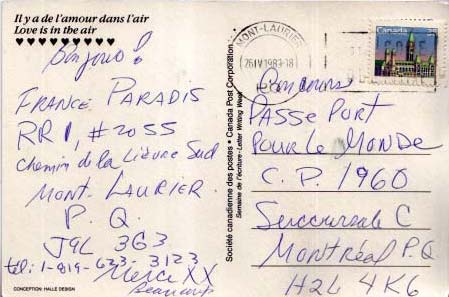 Il y a de l'amour dans l'air
Love is in the air
Bonjour!
FRANCE PARADIS
RR1, #2055
Chemin de la Lièvre Sud
MONT-LAURIER
P.Q.
J9L 3G3
tél: 1-819-623-3123
Merci XX
Beaucoup
CONCEPTION HALLE DESIGN
Société canadienne des postes • Canada Post Corporation
Semaine de l'écriture-Letter Writing Week
MONT-LAURIER
26 IV 1989-18
Canada
Concours
PASSE PORT
POUR LE MONDE
C.P. 1960
Succursale C
Montréal P.Q.
H2L 4K6